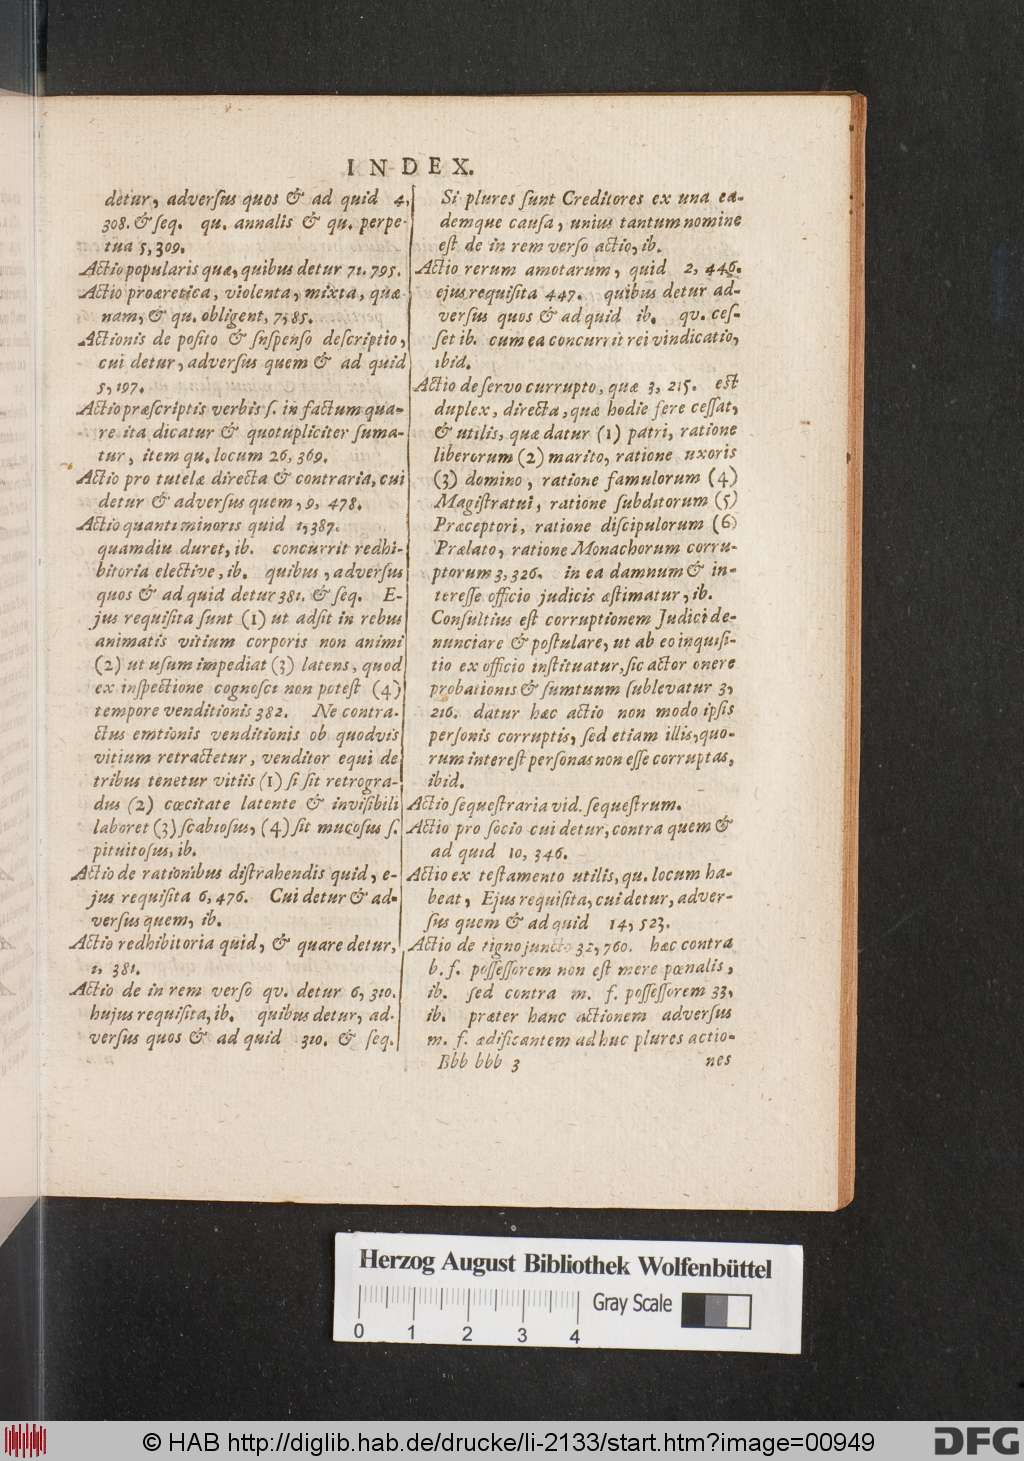 INDEX.
detur, adverſus quos & ad quid 4,
308. & ſeq. qu. annalis & qu. perpe-
tua 5, 309.
Actio popularis quæ, quibus detur 71. 795.
Actio proæretica, violenta, mixta, quæ
nam, & qu. obligent, 7, 85.
Actionis de poſito & ſuſpenſo deſcriptio,
cui detur, adverſus quem & ad quid
5, 197.
Actio præſcriptis verbis ſ. in factum qua-
re ita dicatur & quotupliciter ſuma-
tur, item qu. locum 26, 369.
Actio pro tutelæ directa & contraria, cui
detur & adverſus quem, 9, 478.
Actio quanti minoris quid 1, 387.
quamdiu duret, ib. concurrit redhi-
bitoria elective, ib. quibus, adverſus
quos & ad quid detur 381. & ſeq. E-
jus requiſita ſunt (1) ut adſit in rebus
animatis vitium corporis non animi
(2) ut uſum impediat (3) latens, quod
ex inſpectione cognoſci non poteſt (4)
tempore venditionis 382. Ne contra-
ctus emtionis venditionis ob quodvis
vitium retractetur, venditor equi de
tribus tenetur vitiis (1) ſi ſit retrogra-
dus (2) cœcitate latente & inviſibili
laboret (3) ſcabioſus, (4) ſit mucoſus ſ.
pituitoſus, ib.
Actio de rationibus diſtrahendis quid, e-
jus requiſita 6, 476. Cui detur & ad-
verſus quem, ib.
Actio redhibitoria quid, & quare detur,
1, 381.
Actio de in rem verſo qv. detur 6, 310.
hujus requiſita, ib. quibus detur, ad-
verſus quos & ad quid 310. & ſeq.
Si plures ſunt Creditores ex una ea-
demque cauſa, unius tantum nomine
eſt de in rem verſo actio, ib.
Actio rerum amotarum, quid 2, 446.
ejus requiſita 447. quibus detur ad-
verſus quos & ad quid ib. qv. ceſ-
ſet ib. cum ea concurrit rei vindicatio,
ibid.
Actio de ſervo currupto, quæ 3, 215. eſt
duplex, directa, quæ hodie fere ceſſat,
& utilis, quæ datur (1) patri, ratione
liberorum (2) marito, ratione uxoris
(3) domino, ratione famulorum (4)
Magiſtratui, ratione ſubditorum (5)
Præceptori, ratione diſcipulorum (6)
Prælato, ratione Monachorum corru-
ptorum 3, 326. in ea damnum & in-
tereſſe officio judicis æſtimatur, ib.
Conſultius eſt corruptionem Judici de-
nunciare & poſtulare, ut ab eo inquiſi-
tio ex officio inſtituatur, ſic actor onere
probationis & ſumtuum ſublevatur 3,
216. datur hæc actio non modo ipſis
perſonis corruptis, ſed etiam illis, quo-
rum intereſt perſonas non eſſe corruptas,
ibid.
Actio ſequeſtraria vid. ſequeſtrum.
Actio pro ſocio cui detur, contra quem &
ad quid 10, 346.
Actio ex teſtamento utilis, qu. locum ha-
beat, Ejus requiſita, cui detur, adver-
ſus quem & ad quid 14, 523.
Actio de tigno juncto 32, 760. hæc contra
b. f. poſſeſſorem non eſt mere pœnalis,
ib. ſed contra m. f. poſſeſſorem 33,
ib. præter hanc actionem adverſus
m. f. ædificantem adhuc plures actio-
Bbb bbb 3 nes
Herzog August Bibliothek Wolfenbüttel
Gray Scale
0 1 2 3 4
© HAB http://diglib.hab.de/drucke/li-2133/start.htm?image=00949
DFG